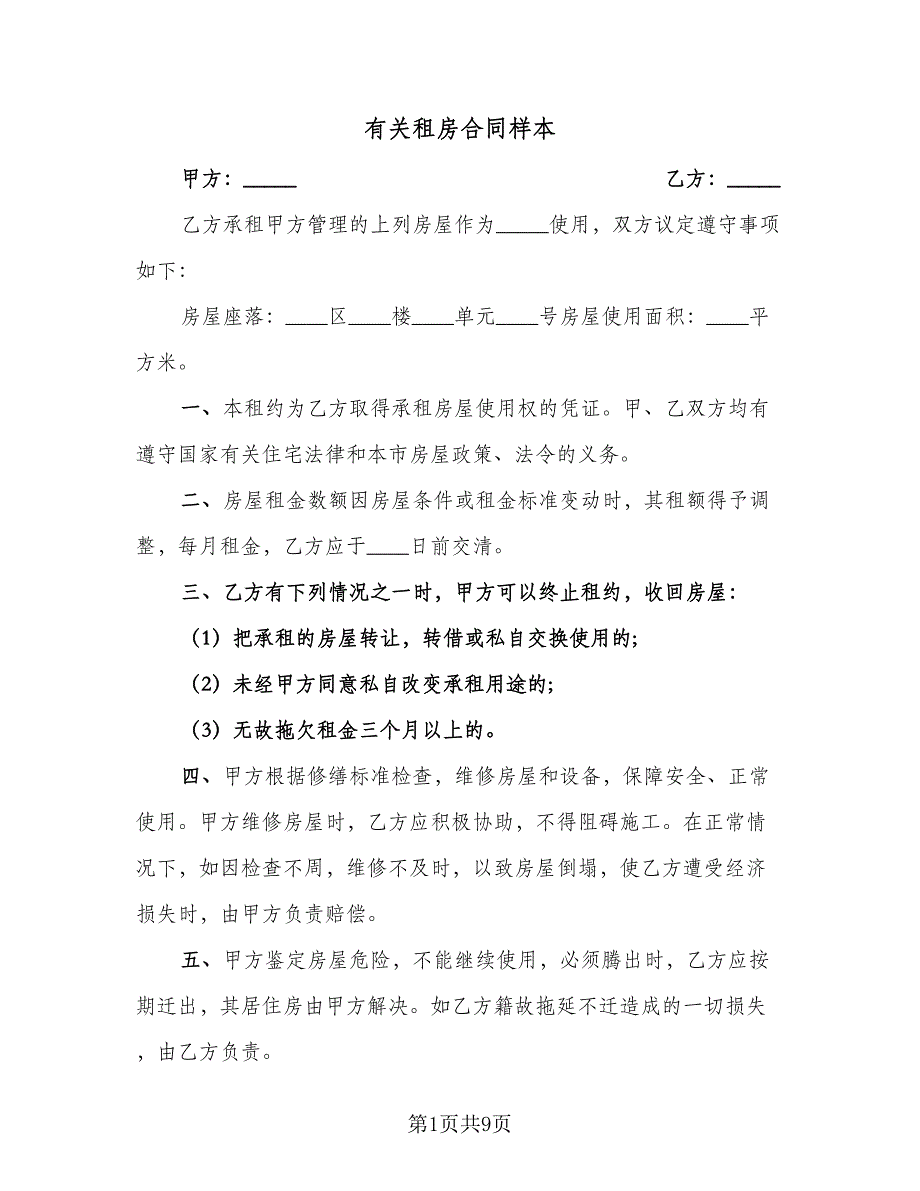 有关租房合同样本
甲方：_____ 乙方：_____
乙方承租甲方管理的上列房屋作为_____使用，双方议定遵守事项
如下：
房屋座落：____区____楼____单元____号房屋使用面积：____平
方米。
一、本租约为乙方取得承租房屋使用权的凭证。甲、乙双方均有
遵守国家有关住宅法律和本市房屋政策、法令的义务。
二、房屋租金数额因房屋条件或租金标准变动时，其租额得予调
整，每月租金，乙方应于____日前交清。
三、乙方有下列情况之一时，甲方可以终止租约，收回房屋：
（1）把承租的房屋转让，转借或私自交换使用的；
（2）未经甲方同意私自改变承租用途的；
（3）无故拖欠租金三个月以上的。
四、甲方根据修缮标准检查，维修房屋和设备，保障安全、正常
使用。甲方维修房屋时，乙方应积极协助，不得阻碍施工。在正常情
况下，如因检查不周，维修不及时，以致房屋倒塌，使乙方遭受经济
损失时，由甲方负责赔偿。
五、甲方鉴定房屋危险，不能继续使用，必须腾出时，乙方应按
期迁出，其居住房由甲方解决。如乙方籍故拖延不迁造成的一切损失
，由乙方负责。
第1页共9页